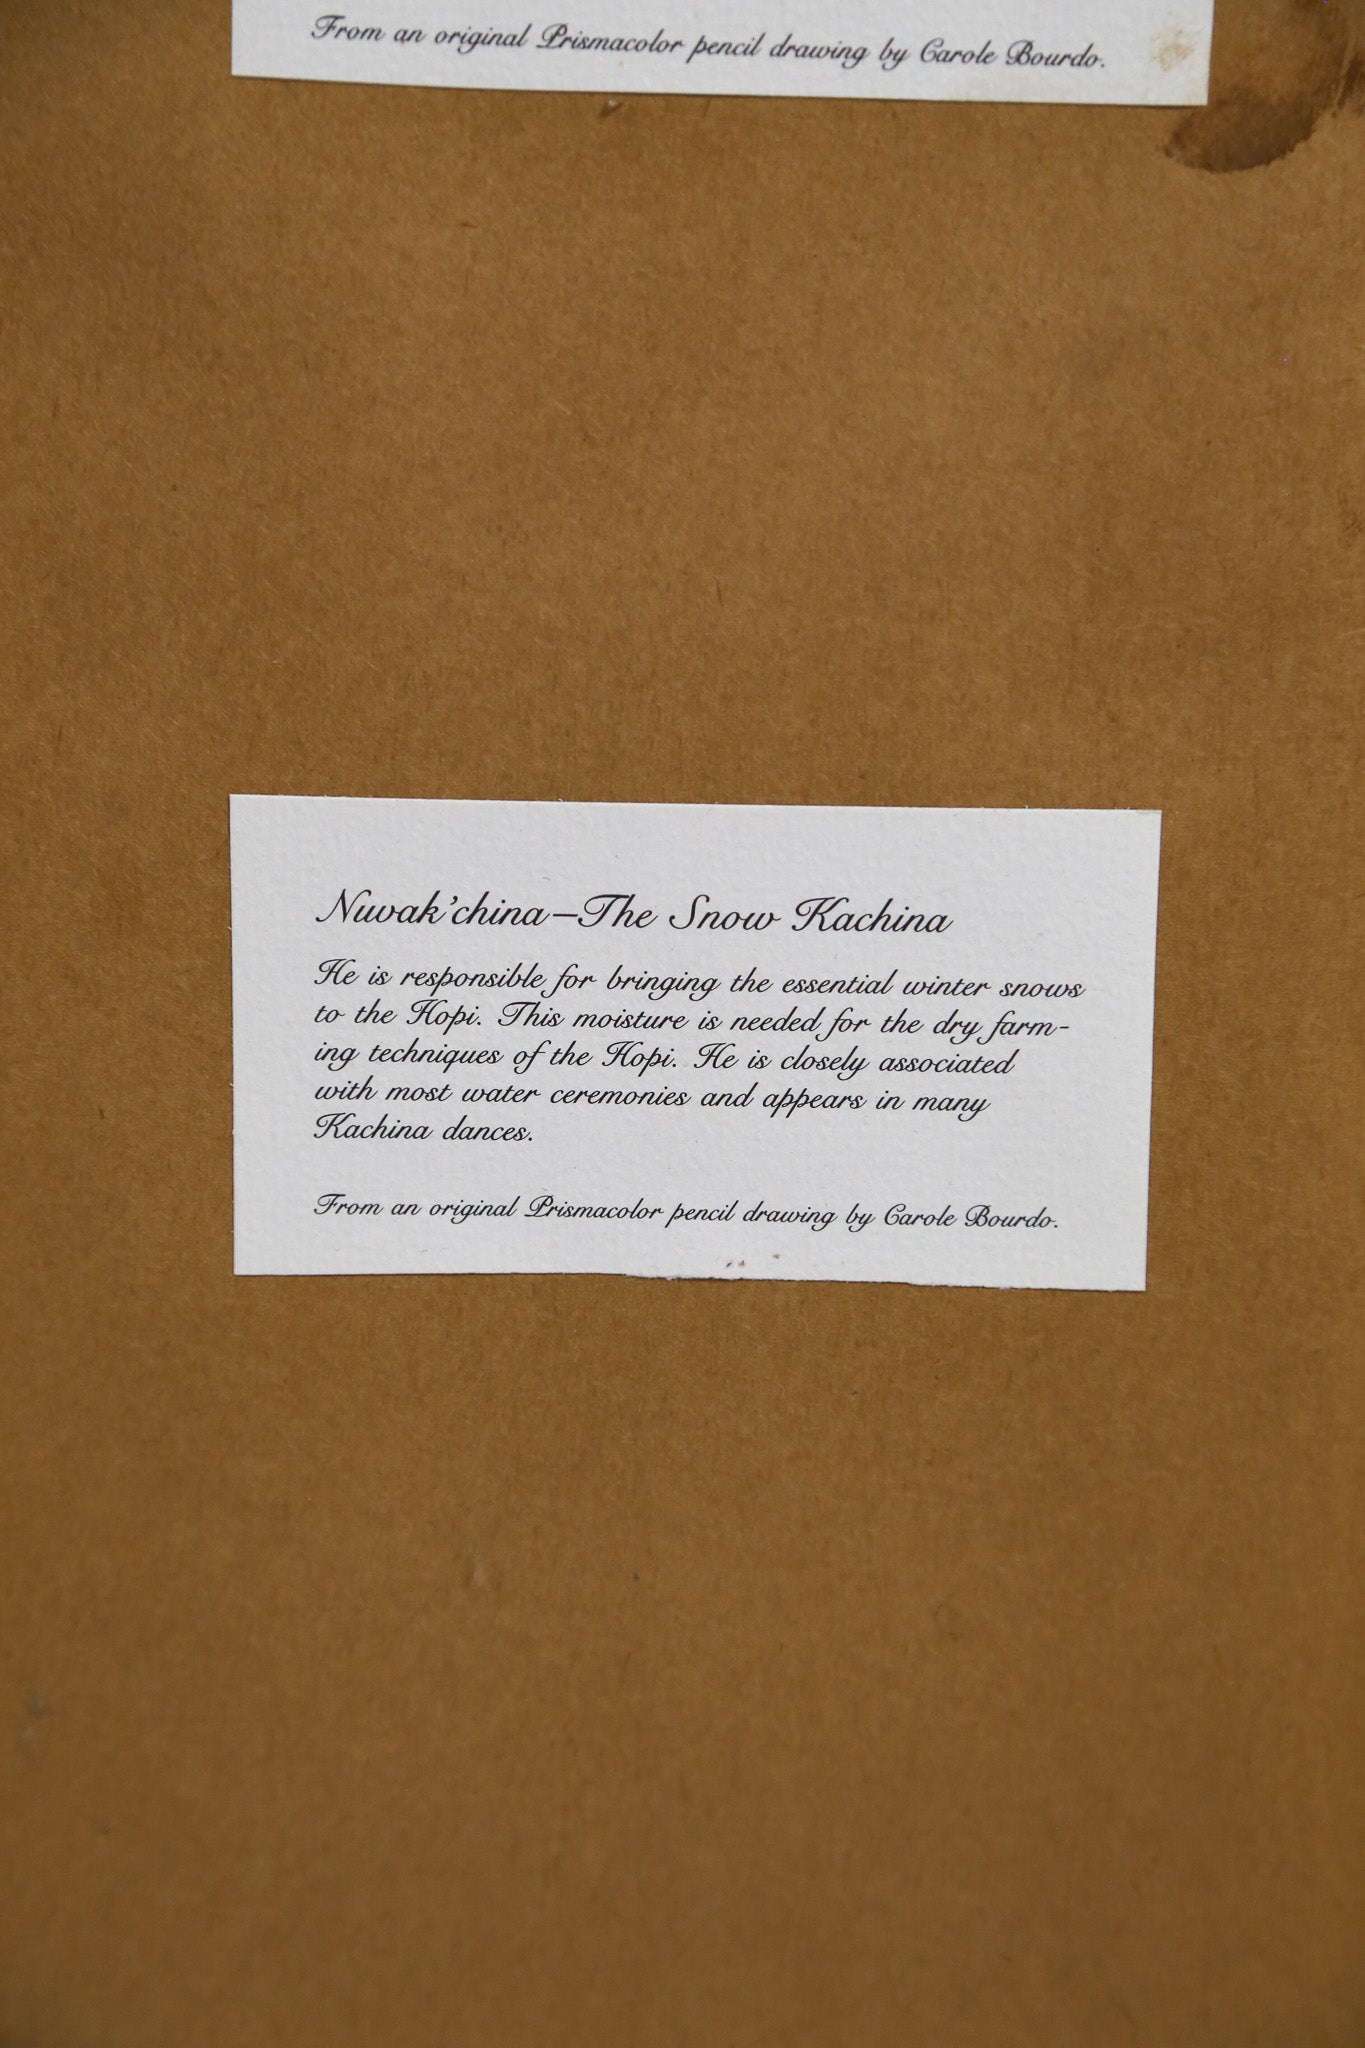 From an original Prismacolor pencil drawing by Carole Bourdo.
Nuvak'china—The Snow Kachina
He is responsible for bringing the essential winter snows
to the Hopi. This moisture is needed for the dry farm-
ing techniques of the Hopi. He is closely associated
with most water ceremonies and appears in many
Kachina dances.
From an original Prismacolor pencil drawing by Carole Bourdo.